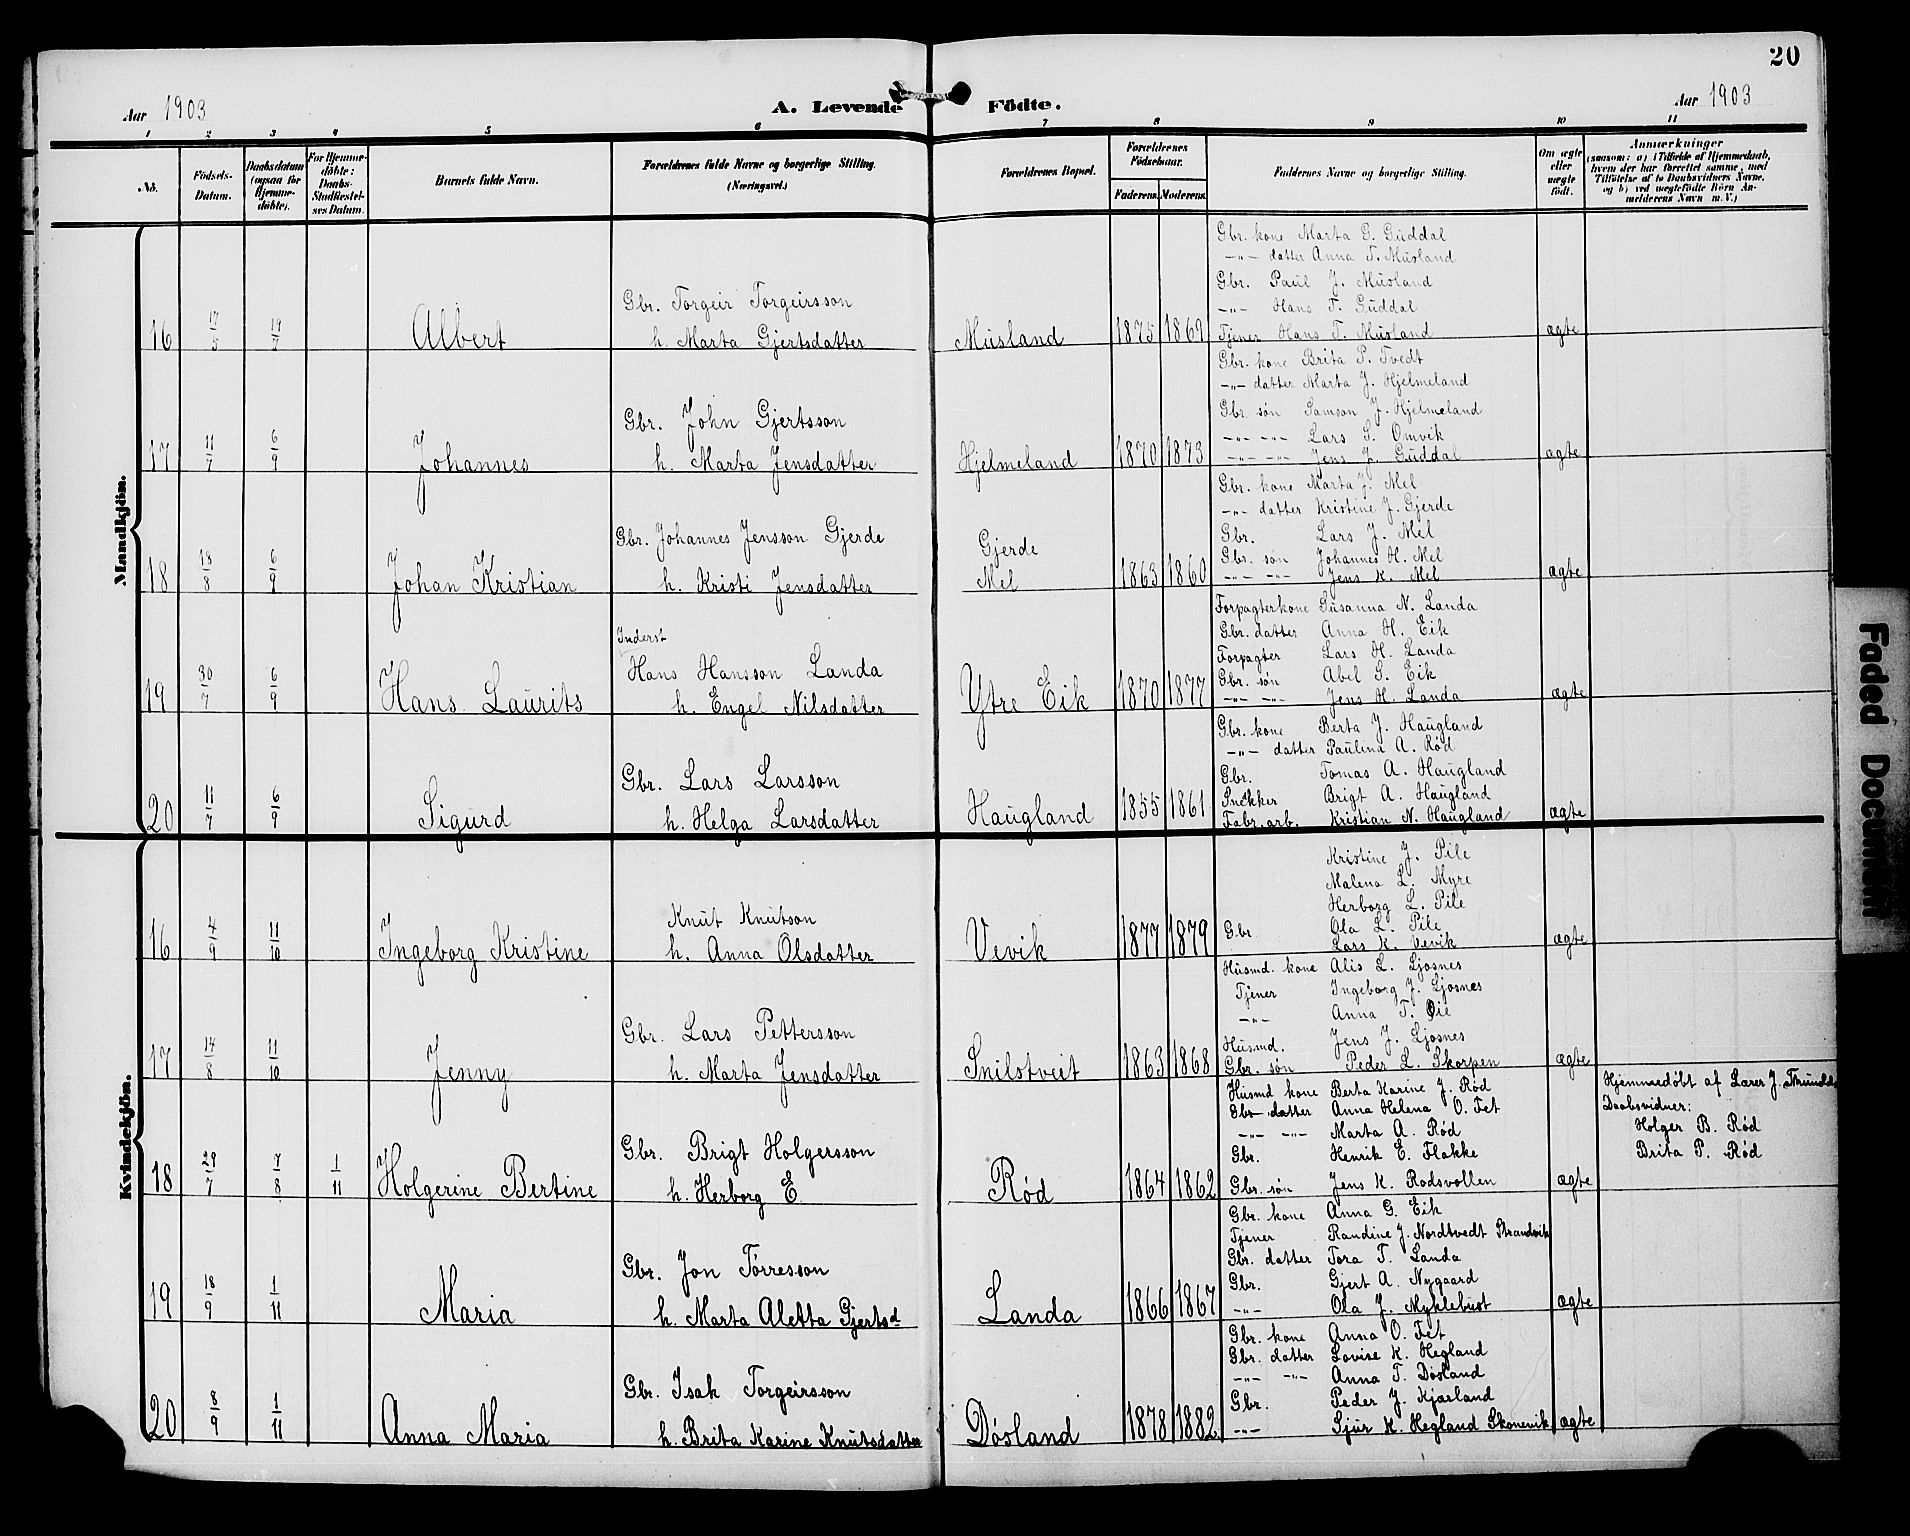 20
Aar 1903
A. Levende Födte.
Aar 1903
1 2 3 4 5 6 7 8 9 10 11
No.
Födsels-Datum.
Daabsdatum (ogsaa for Hjemme-döbte).
For Hjemme-döbte: Daabs-Stadfæstel-ses Datum.
Barnets fulde Navn.
Forældrenes fulde Navne og borgerlige Stilling.
(Næringsvei.)
Forældrenes Bopæl.
Forældrenes Födselsaar.
Faderens. Moderens.
Faddernes Navne og borgerlige Stilling.
Om ægte eller uægte födt.
Anmærkninger
(saasom: a) i Tilfælde af Hjemmedaab,
hvem der har forrettet samme, med
Tilföielse af to Daabsvidners Navne,
og b) ved uægtefödte Börn An-
melderens Navn m. V.)
Mandkjön.
16 17/5 19/7 Albert
Gbr. Torgeir Torgeirsson
h. Marta Gjertsdatter
Musland 1875 1869
Gbr. kone Marta G. Guddal
—„— datter Anna T. Musland
Gbr. Paul J. Musland
—„— Hans T. Guddal
Tjener Hans T. Musland
ægte
17 11/7 6/9 Johannes
Gbr. John Gjertsson
h. Marta Jensdatter
Hjelmeland 1870 1873
Gbr. kone Brita P. Tvedt
—„— datter Marta J. Hjelmeland
Gbr. søn Samson J. Hjelmeland
—„— —„— Lars S. Omvik
—„— —„— Jens J. Guddal
ægte
18 18/8 6/9 Johan Kristian
Gbr. Johannes Jensson Gjerde
h. Kristi Jensdatter
Gjerde
Mel 1863 1860
Gbr. kone Marta J. Mel
—„— datter Kristine J. Gjerde
Gbr. Lars J. Mel
Gbr. søn Johannes H. Mel
—„— —„— Jens K. Mel
ægte
19 30/7 6/9 Hans Laurits
Inderst
Hans Hansson Landa
h. Engel Nilsdatter
Ytre Eik 1870 1877
Forpagterkone Susanna N. Landa
Gbr. datter Anna H. Eik
Forpagter Lars H. Landa
Gbr. søn Abel S. Eik
—„— —„— Jens H. Landa
ægte
20 11/7 6/9 Sigurd
Gbr. Lars Larsson
h. Helga Larsdatter
Haugland 1855 1861
Gbr. kone Berta J. Haugland
—„— datter Paulina A. Rød
Gbr. Tomas A. Haugland
Snekker Brigt A. Haugland
Fabr. arb. Kristian N. Haugland
ægte
Kvindekjön.
16 4/9 11/10 Ingeborg Kristine
Knut Knutson
h. Anna Olsdatter
Vevik 1877 1879
Kristine J. Pile
Malena L. Myre
Herborg L. Pile
Gbr. Ola L. Pile
Lars K. Vevik
ægte
17 14/8 11/10 Jenny
Gbr. Lars Pettersson
h. Marta Jensdatter
Snilstveit 1863 1868
Husmd. kone Alis L. Ljosnes
Tjener Ingeborg J. Ljosnes
—„— Anna T. Øie
Husmd. Jens J. Ljosnes
Gbr. søn Peder L. Skorpen
ægte
18 29/7 7/8 1/11 Holgerine Bertine
Gbr. Brigt Holgersson
h. Herborg E.
Rød 1864 1862
Husmd kone Berta Karine J. Rød
Gbr datter Anna Helena O. Fet
—„— —„— Marta A. Rød
Gbr. Henrik E. Flakke
Gbr. søn Jens K. Rødsvollen
ægte
Hjemmedøbt af Lærer J.
Daabsvidner:
Holger B. Rød
Brita P. Rød
19 18/9 1/11 Maria
Gbr. Jon Tørresson
h. Marta Aletta Gjertsd
Landa 1866 1867
Gbr. kone Anna G. Eik
Tjener Randine J. Nordtvedt Strandvik
Gbr. datter Tora T. Landa
Gbr. Gjert A. Nygaard
—„— Ola J. Myklebust
ægte
20 8/9 1/11 Anna Maria
Gbr. Isak Torgeirsson
h. Brita Karine Knutsdatter
Døsland 1878 1882
Gbr. kone Anna O. Fet
Gbr. datter Lovise K. Hegland
—„— —„— Anna T. Døsland
Gbr. Peder J. Kjærland
—„— Sjur K. Hegland Skonevik
ægte
Faded Document